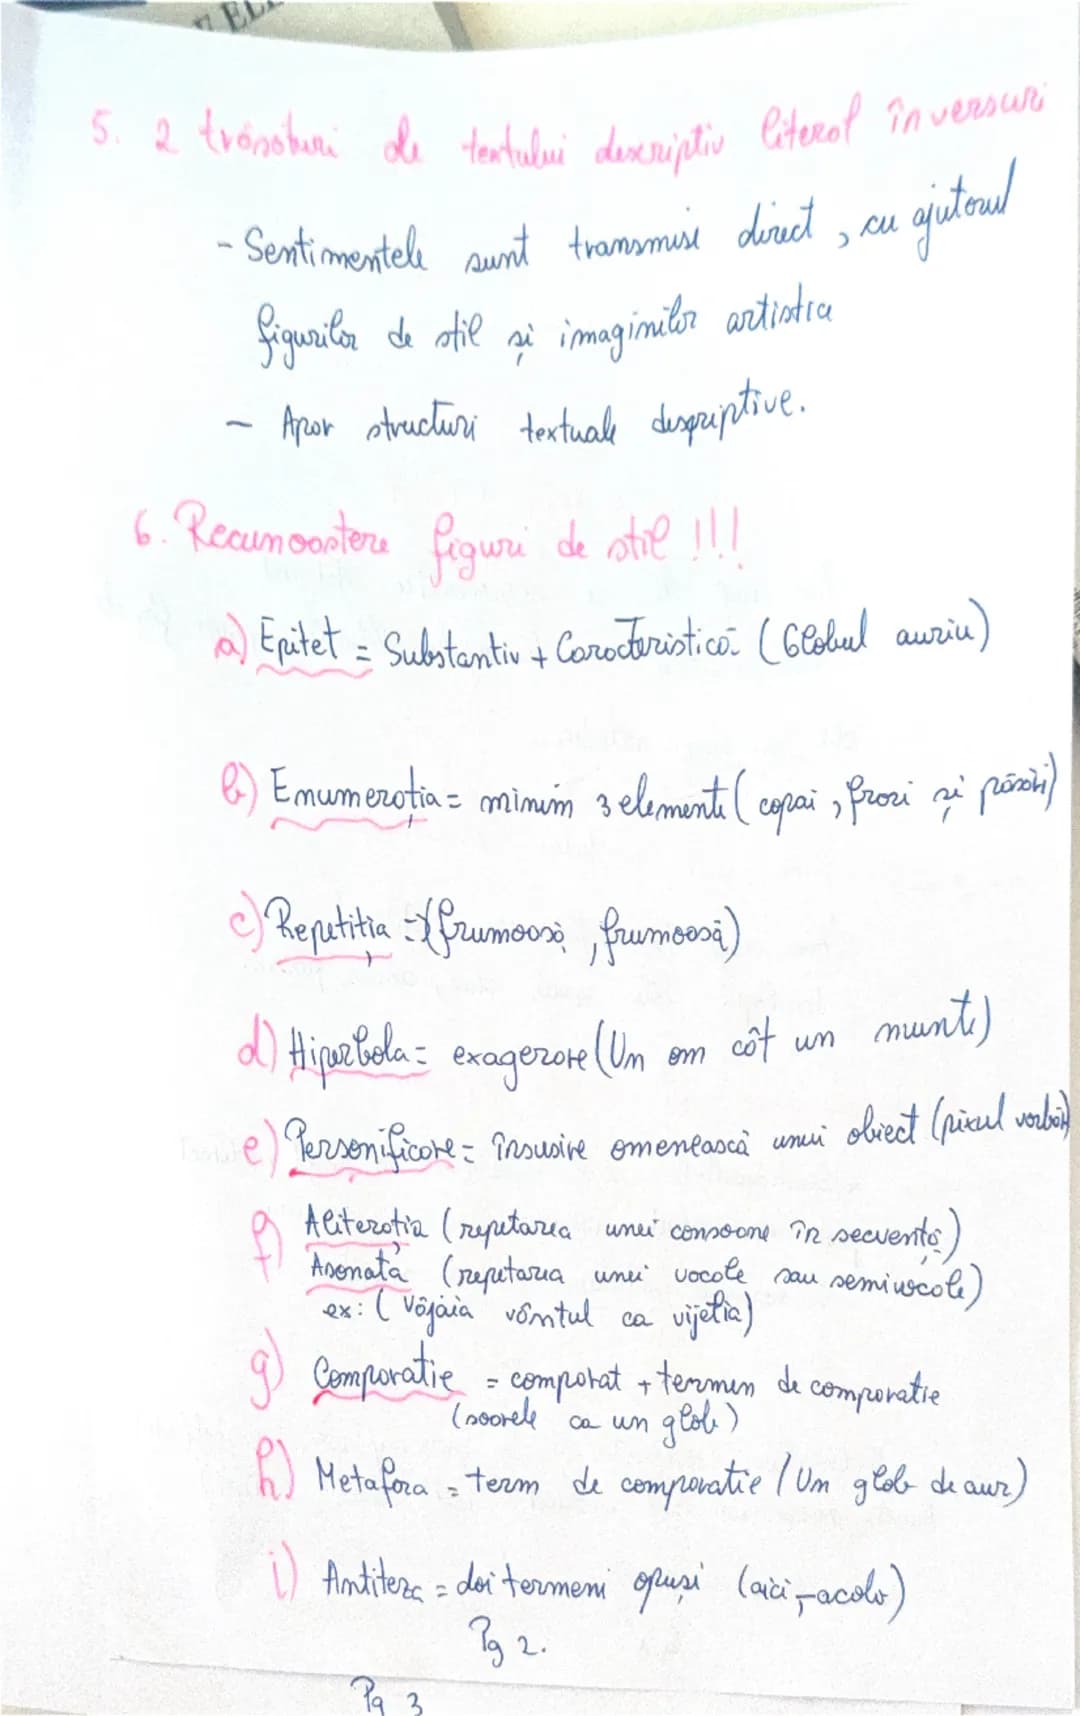 5. 2 trăsături de textului descriptiv literar în versuri
- Sentimentele sunt transmise direct, cu ajutorul
figurilor de stil și imaginilor artistice
- Apar structuri textuale descriptive.
6. Recunoastere figuri de stil !!!
a) Epitet = Substantiv + Caracteristică (Globul auriu)
b) Enumerația = minim 3 elemente (copai, frori și păsări)
c) Repetiția = (frumoasă, frumoasă)
d) Hiperbola = exagerare (Un om cât un munte)
e) Personificare = însusire omenească unui obiect (pixul vorbăr)
f) Aliterația (repetarea unei consoane în secvență)
Asonata (repetarea unei vocale sau semivocale)
ex: ( Vâjâia vântul ca vijelia)
g) Comparatie = comparat + termen de comparatie
(soarele ca un glob)
h) Metafora = term de comparatie (Un glob de aur)
i) Antiteza = doi termeni opuși (aici, -acolo)
Pg 2.
Pg 3